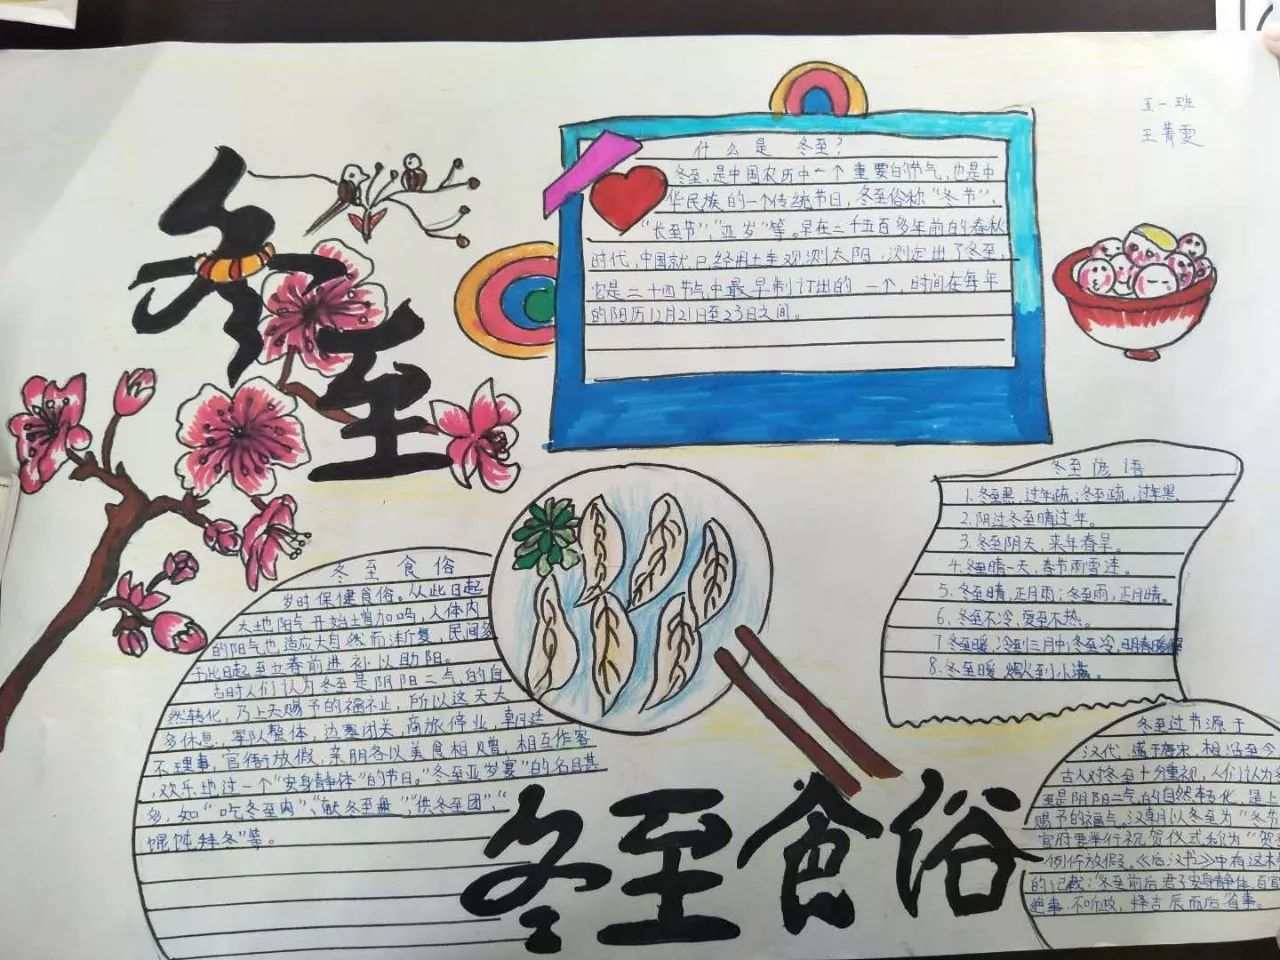 五一班
王菁雯
冬至
什么是 冬至？
冬至，是中国农历中一个重要的节气，也是中
华民族的一个传统节日，冬至俗称“冬节”、
“长至节”、“亚岁”等。早在二千五百多年前的春秋
时代，中国就已经用土圭观测太阳，测定出了冬至，
它是二十四节气中最早制订出的一个，时间在每年
的阳历12月21日至23日之间。
冬至谚语
1.冬至黑，过年疏；冬至疏，过年黑
2.阴过冬至晴过年。
3.冬至阴天，来年春旱。
4.冬至晴一天，春节雨雪连。
5.冬至晴，正月雨；冬至雨，正月晴。
6.冬至不冷，夏至不热。
7.冬至暖，冷到三月中；冬至冷，明春暖
8.冬至暖，烤火到小满。
冬至食俗
岁时保健食俗。从此日起
天地阳气开始增加吗，人体内
的阳气也适应大自然而渐复，民间多
于此日起至立春前进补以助阳。
古时人们认为冬至是阴阳二气的自
然转化，乃上天赐予的福不止，所以这天大
多休息，军队整体，边塞闭关，商旅停业，朝廷
不理事，官衙放假，亲朋各以美食相赠，相互作客
，欢乐地过一个“安身静体”的节日。“冬至亚岁宴”的名目甚
多，如“吃冬至肉”、“献冬至盘”、“供冬至团”、“
馄饨拜冬”等。
冬至食俗
冬至过节源于
汉代，盛于唐宋，相沿至今
古人对冬至十分重视，人们认为冬
至是阴阳二气的自然转化，是上
赐予的福气。汉朝以冬至为“冬节
官府要举行祝贺仪式称为“贺
例行放假。《后汉书》中有这样
的记载：“冬至前后，君子安身静体，百官
绝事，不听政，择吉辰而后省事。